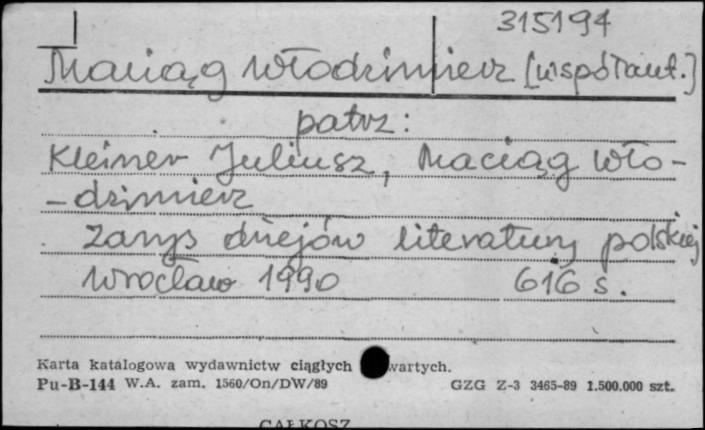 315194
Maciąg Włodzimierz [współaut.]
patrz:
Kleiner Juliusz, Maciąg Wło-
-dzimierz
Zarys dziejów literatury polskiej
Wrocław 1990 616 s.
Karta katalogowa wydawnictw ciągłych wartych.
Pu-B-144 W.A. zam. 1560/On/DW/89 GZG Z-3 3465-89 1.500.000 szt.